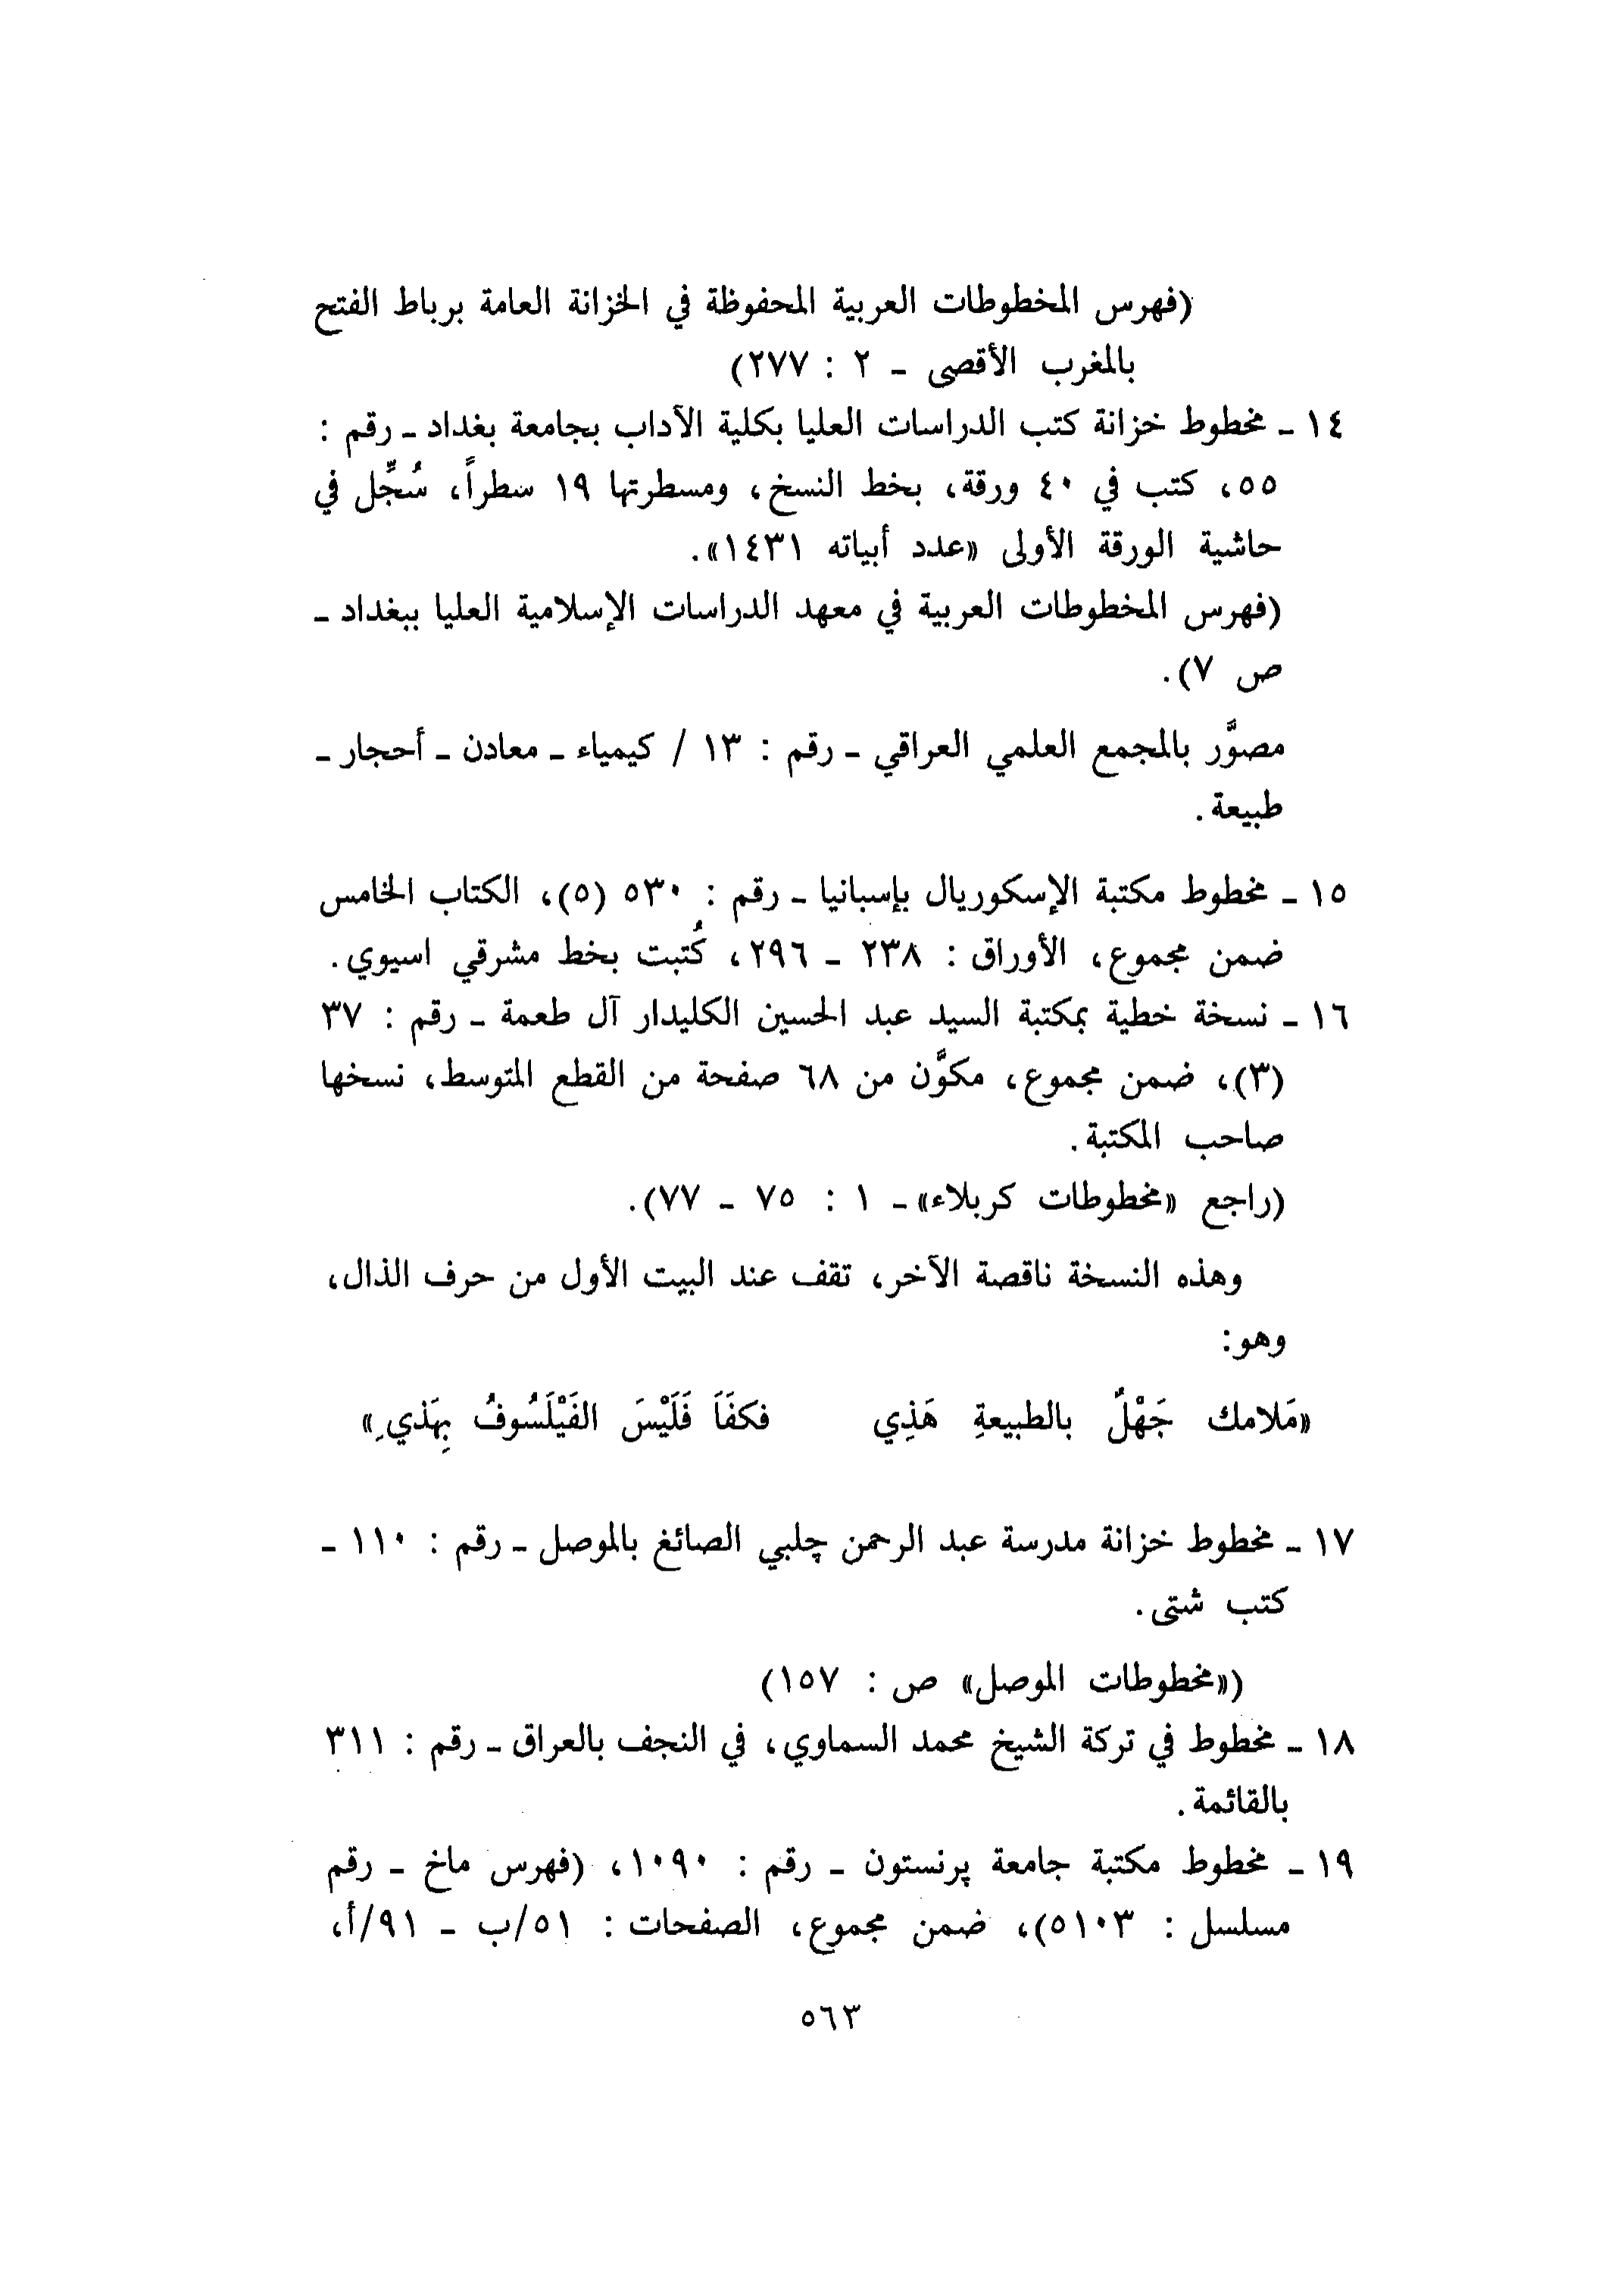 (فهرس المخطوطات العربية المحفوظة في الخزانة العامة برباط الفتح
بالمغرب الأقصى ـ ٢ : ٢٧٧)
١٤ ـ مخطوط خزانة كتب الدراسات العليا بكلية الآداب بجامعة بغداد ـ رقم :
٥٥، كتب في ٤٠ ورقة، بخط النسخ، ومسطرتها ١٩ سطراً، سُجِّل في
حاشية الورقة الأولى «عدد أبياته ١٤٣١».
(فهرس المخطوطات العربية في معهد الدراسات الإسلامية العليا ببغداد ـ
ص ٧).
مصوَّر بالمجمع العلمي العراقي ـ رقم : ١٣ / كيمياء ـ معادن ـ أحجار ـ
طبيعة.
١٥ ـ مخطوط مكتبة الإسكوريال بإسبانيا ـ رقم : ٥٣٠ (٥)، الكتاب الخامس
ضمن مجموع، الأوراق : ٢٣٨ ـ ٢٩٦، كُتبت بخط مشرقي اسيوي.
١٦ ـ نسخة خطية بمكتبة السيد عبد الحسين الكليدار آل طعمة ـ رقم : ٣٧
(٣)، ضمن مجموع، مكوَّن من ٦٨ صفحة من القطع المتوسط، نسخها
صاحب المكتبة.
(راجع «مخطوطات كربلاء» ـ ١ : ٧٥ ـ ٧٧).
وهذه النسخة ناقصة الآخر، تقف عند البيت الأول من حرف الذال،
وهو:
«مَلامك جَهْلٌ بالطبيعةِ هَذِي فكفَاَ فَلَيْسَ الفَيْلَسُوفُ بِهَذيِ»
١٧ ـ مخطوط خزانة مدرسة عبد الرحمن چلبي الصائغ بالموصل ـ رقم : ١١٠ ـ
كتب شتى.
(«مخطوطات الموصل» ص : ١٥٧)
١٨ ـ مخطوط في تركة الشيخ محمد السماوي، في النجف بالعراق ـ رقم : ٣١١
بالقائمة.
١٩ ـ مخطوط مكتبة جامعة پرنستون ـ رقم : ١٠٩٠، (فهرس ماخ ـ رقم
مسلسل : ٥١٠٣)، ضمن مجموع، الصفحات : ٥١/ب ـ ٩١/أ،
٥٦٣